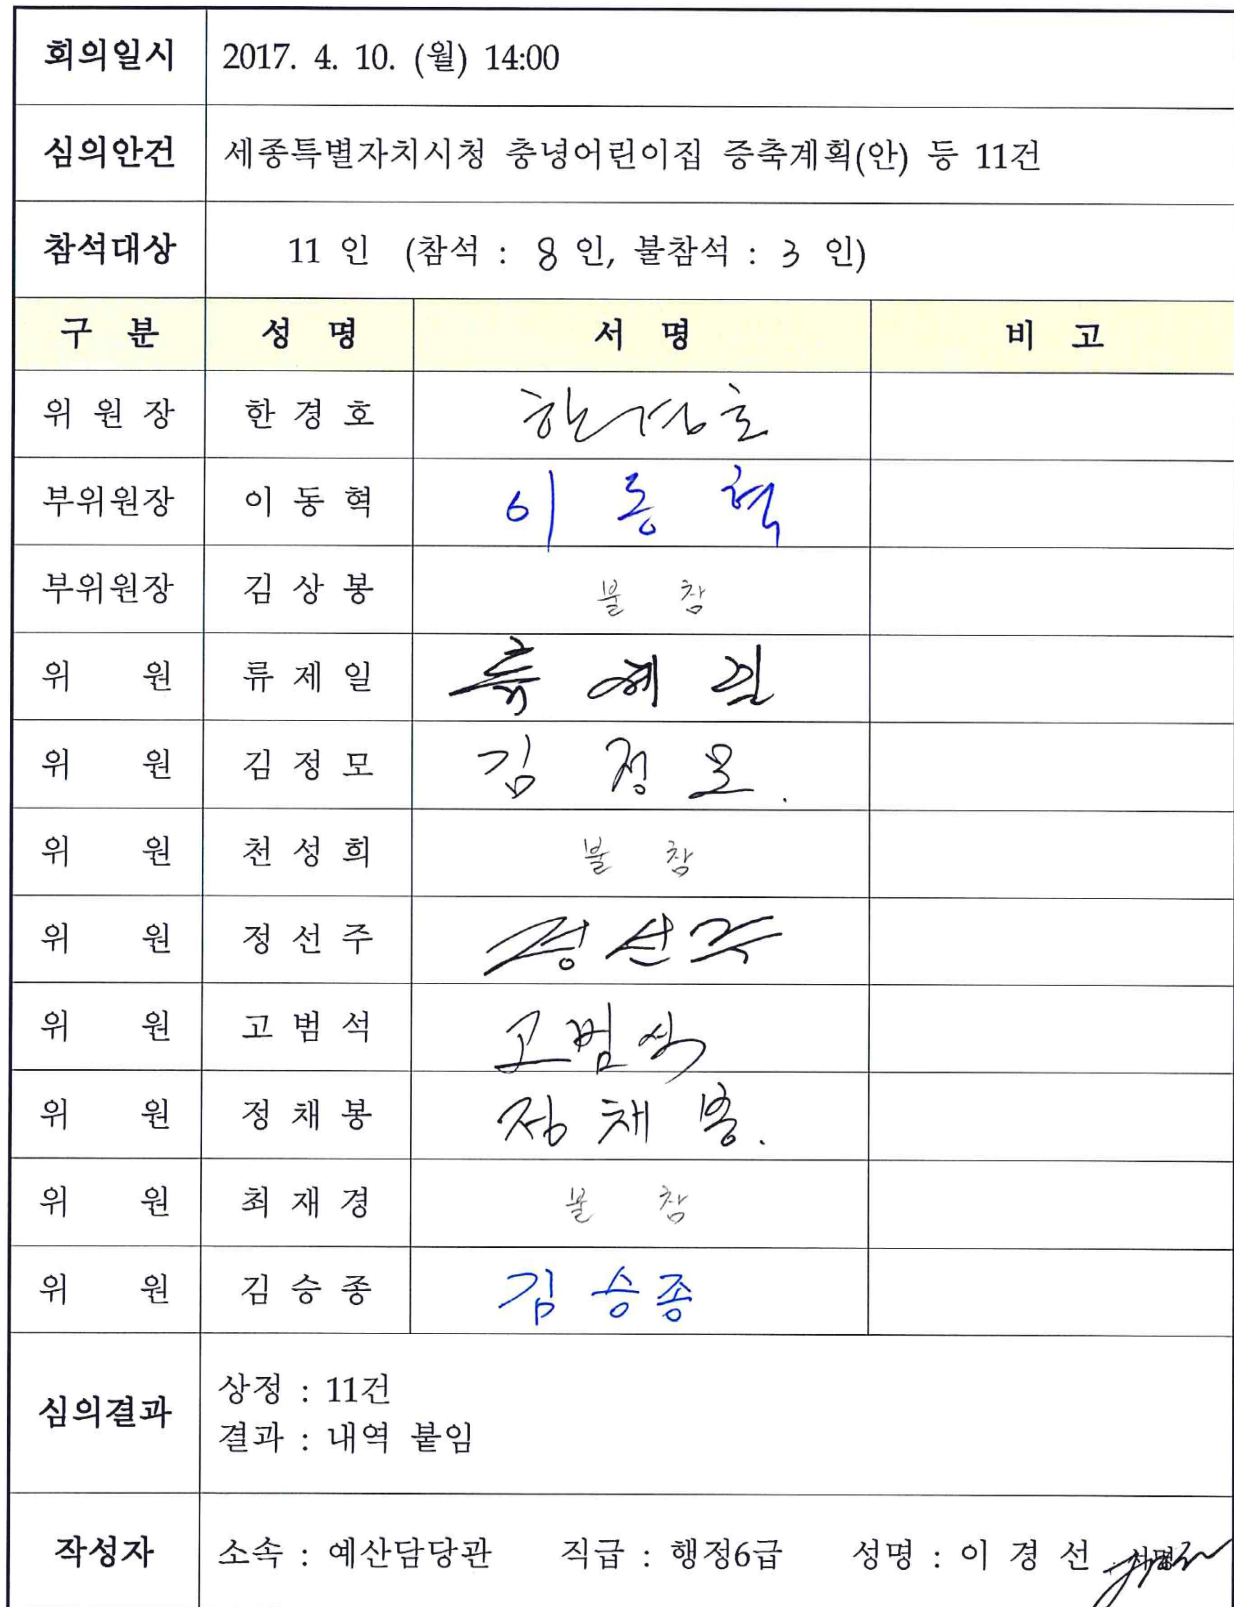 회의일시 2017. 4. 10. (월) 14:00
심의안건 세종특별자치시청 충녕어린이집 증축계획(안) 등 11건
참석대상 11 인 (참석 : 8 인, 불참석 : 3 인)
구 분 성 명 서 명 비 고
위 원 장 한 경 호 한경호
부위원장 이 동 혁 이 동 혁
부위원장 김 상 봉 불 참
위 원 류 제 일 류 제 일
위 원 김 정 모 김 정 모.
위 원 천 성 희 불 참
위 원 정 선 주 정선주
위 원 고 범 석 고범석
위 원 정 채 봉 정 채 봉.
위 원 최 재 경 불 참
위 원 김 승 종 김 승 종
심의결과 상정 : 11건
결과 : 내역 붙임
작성자 소속 : 예산담당관 직급 : 행정6급 성명 : 이 경 선